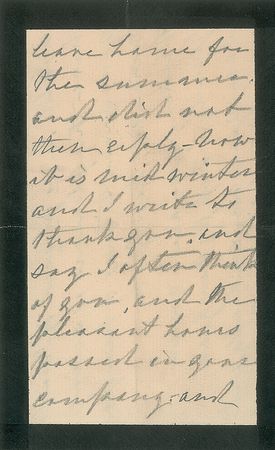 leave home for
the summer.
and did not
then reply - now
it is mid winter
and I write to
thank you, and
say I often think
of you, and the
pleasant hours
passed in your
company - and